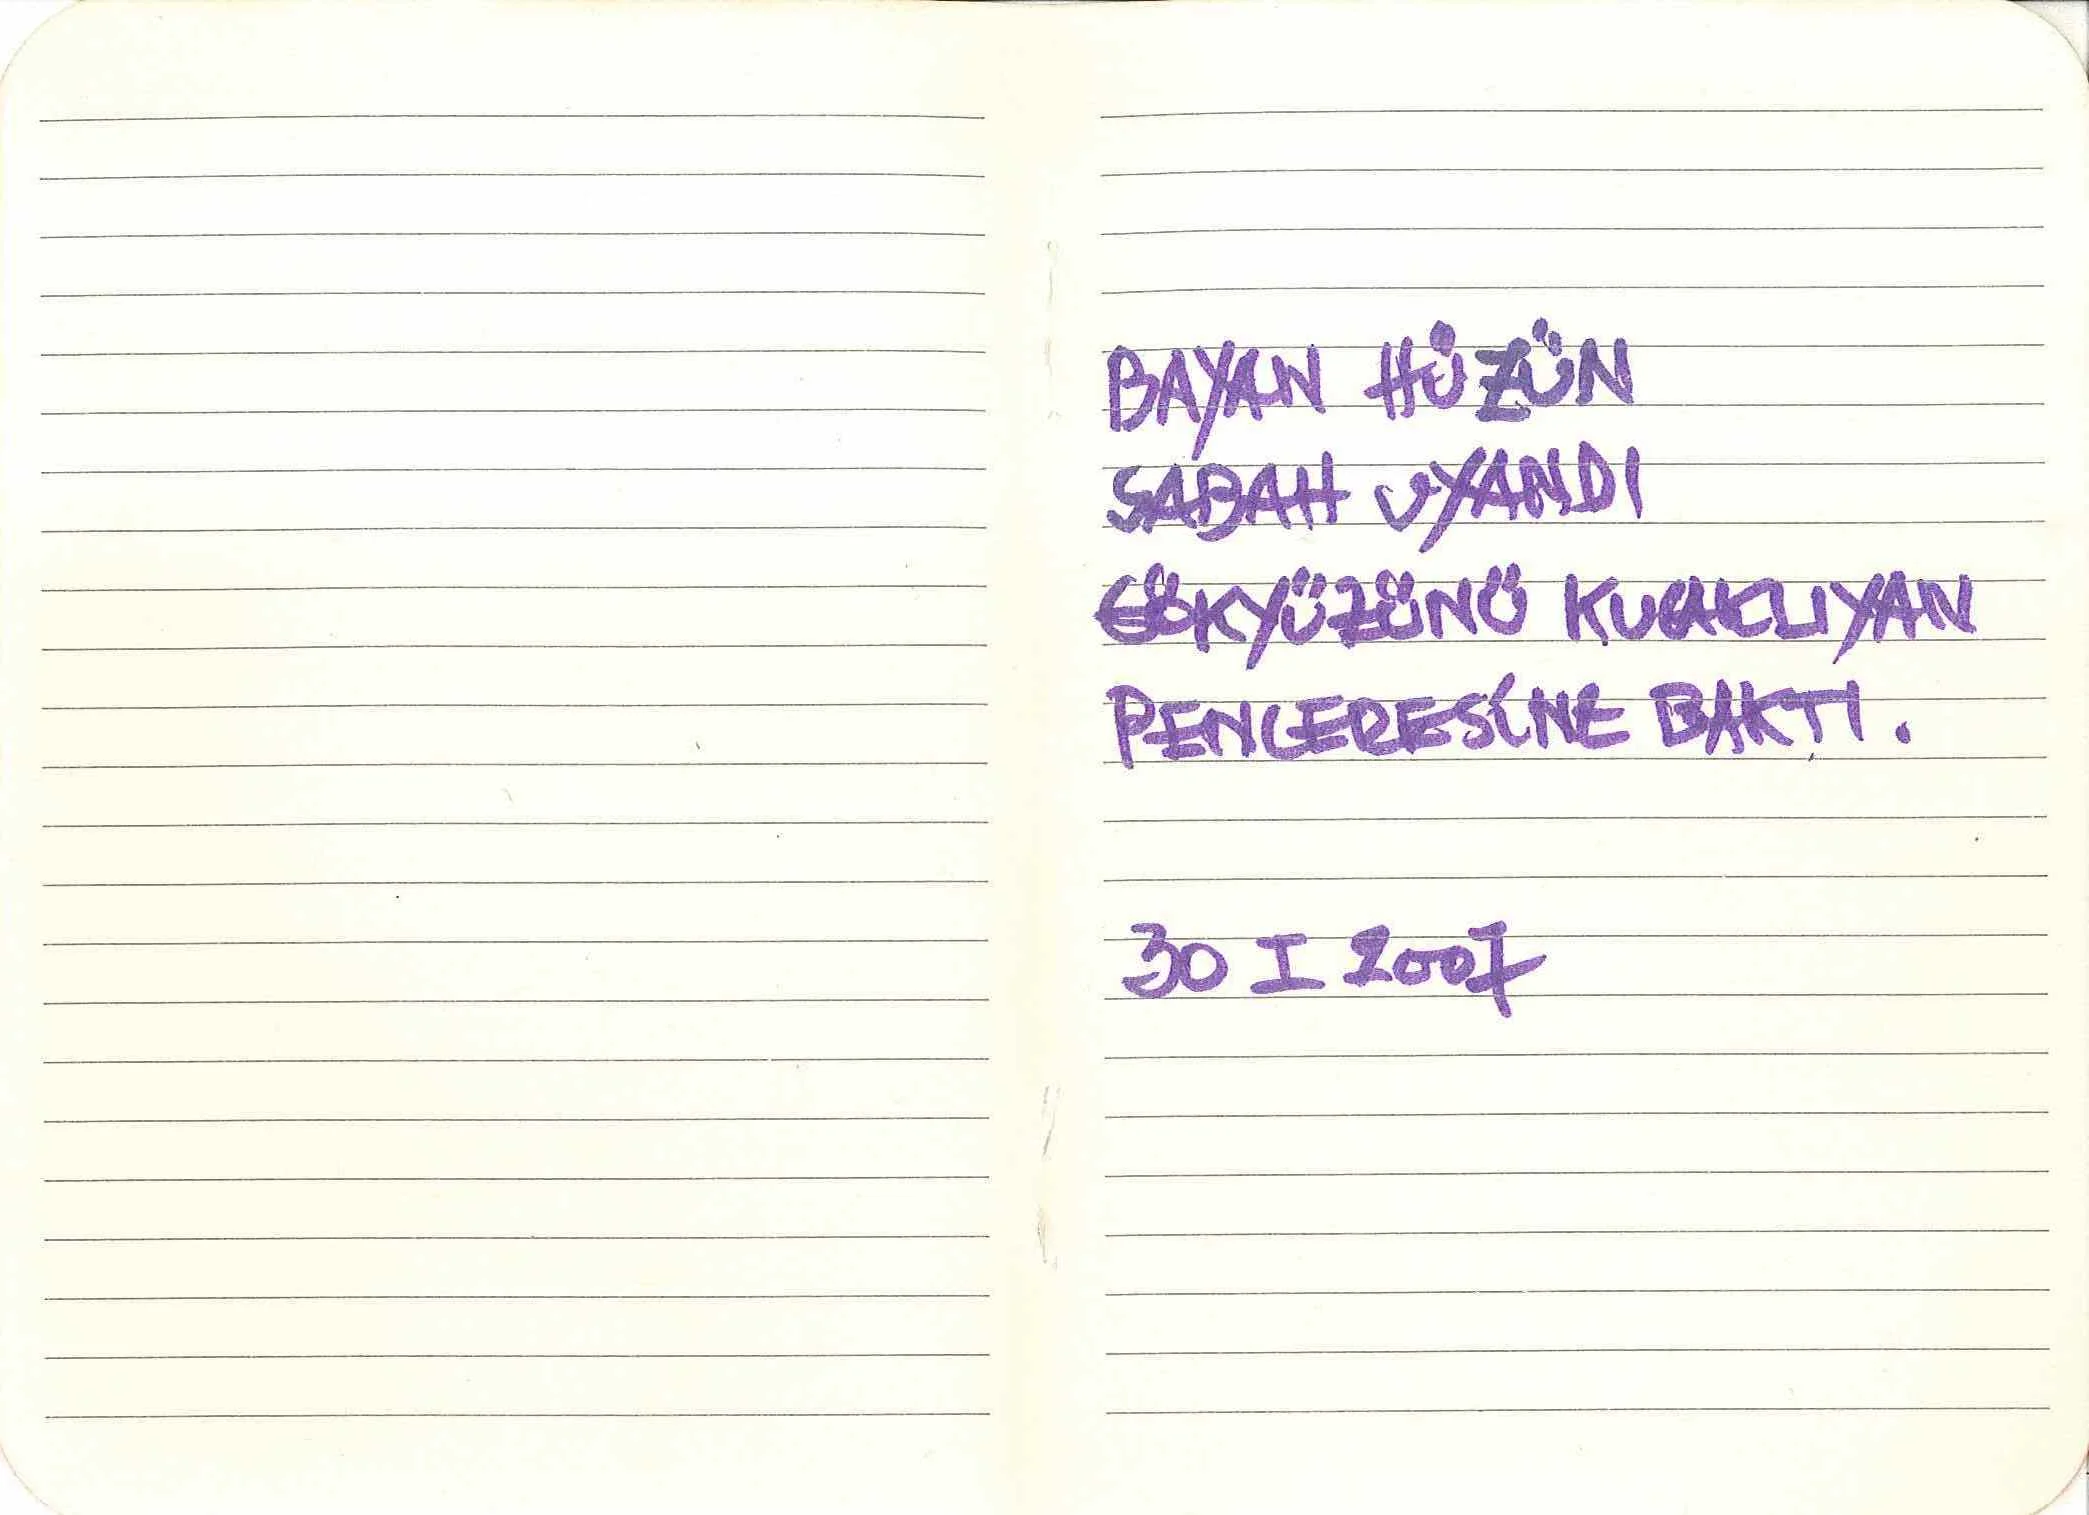 BAYAN HÜZÜN
SABAH UYANDI
GÖKYÜZÜNÜ KUCAKLIYAN
PENCERESİNE BAKTI.
30 I 2007